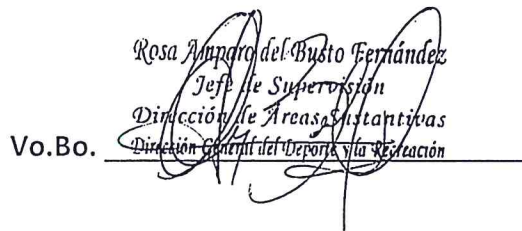 Rosa Amparo del Busto Fernández
Jefe de Supervisión
Dirección de Areas Sustantivas
Vo.Bo. Dirección General del Deporte y la Recreación